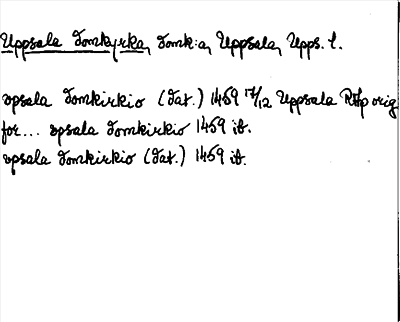 Uppsala domkyrka, domk:a, Uppsala, Upps. l.
vpsala domkirkio (dat.) 1459 17/12 Uppsala RAp orig
for... vpsala domkirkio 1459 ib.
vpsala domkirkio (dat.) 1459 ib.